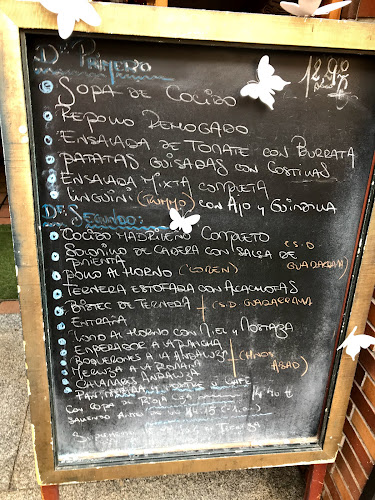 De Primero
12,90
SOPA DE COCIDO
REPOLLO REMOGADO
ENSALADA DE TOMATE CON BURRATA
PATATAS GUISADAS CON COSTILLAS
ENSALADA MIXTA COMPLETA
LINGUINI CON AJO Y GUINDILLA
DE SEGUNDO:
COCIDO MADRILEÑO COMPLETO
SOLOMILLO DE CADERA CON SALSA DE
PIMIENTA
GUADARRAMA
POLLO AL HORNO
TERNERA ESTOFADA CON ALCACHOFAS
BISTEC DE TERNERA (C.S.D. GUADARRAMA
ENTRAÑA
LOMO AL HORNO CON MIEL Y MOSTAZA
EMPERADOR A LA PLANCHA
BOQUERONES A LA ANDALUZA
MERLUZA A LA ROMANA
CALAMARES ANDALUZA
PAN, POSTRE Y CAFE
CON COPA DE RIOJA 14,90 €